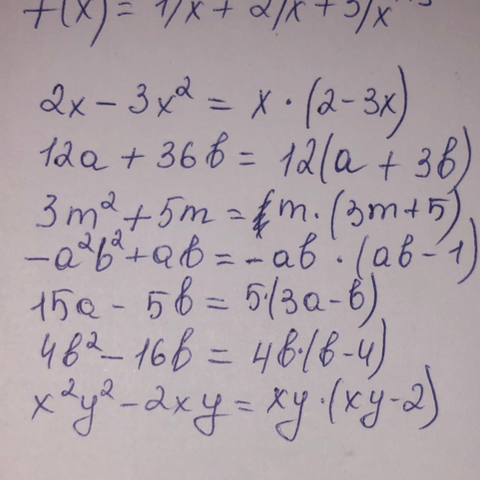 f(x) = 1/x + 2/x + 3/x
2x - 3x² = x · (2 - 3x)
12a + 36b = 12(a + 3b)
3m² + 5m = m · (3m + 5)
-a²b² + ab = -ab · (ab - 1)
15a - 5b = 5·(3a - b)
4b² - 16b = 4b·(b - 4)
x²y² - 2xy = xy·(xy - 2)